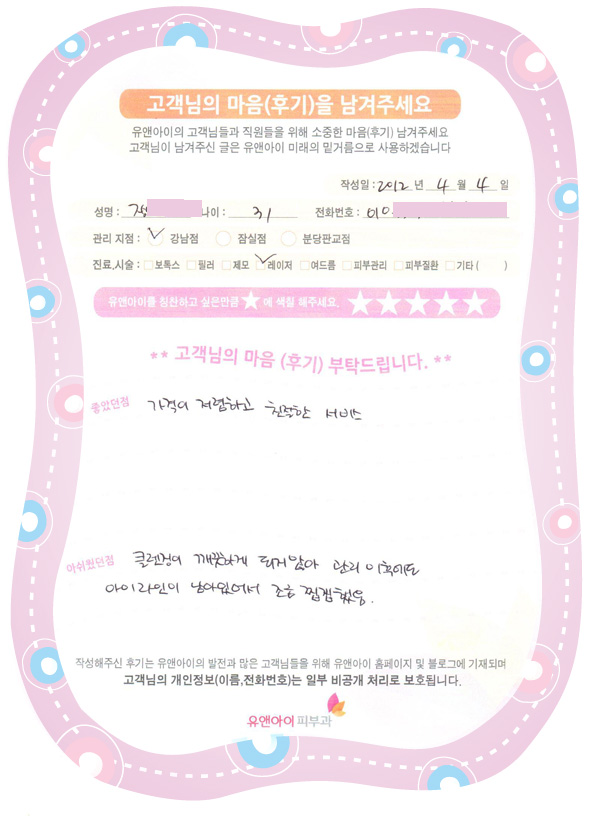 고객님의 마음(후기)을 남겨주세요
유앤아이의 고객님들과 직원들을 위해 소중한 마음(후기) 남겨주세요
고객님이 남겨주신 글은 유앤아이 미래의 밑거름으로 사용하겠습니다
작성일 : 2012 년 4 월 4 일
성명 : 정 나이 : 31 전화번호 : 010
관리 지점 : 강남점 잠실점 분당판교점
진료,시술 : 보톡스 필러 제모 레이저 여드름 피부관리 피부질환 기타 ( )
유앤아이를 칭찬하고 싶은만큼 ★ 에 색칠 해주세요. ★★★★★
** 고객님의 마음 (후기) 부탁드립니다. **
좋았던점 가격이 저렴하고 친절한 서비스
아쉬웠던점 클렌징이 깨끗하게 되지않아 관리 이후에도
아이라인이 남아있어서 조금 찝찝했음.
작성해주신 후기는 유앤아이의 발전과 많은 고객님들을 위해 유앤아이 홈페이지 및 블로그에 기재되며
고객님의 개인정보(이름,전화번호)는 일부 비공개 처리로 보호됩니다.
유앤아이피부과